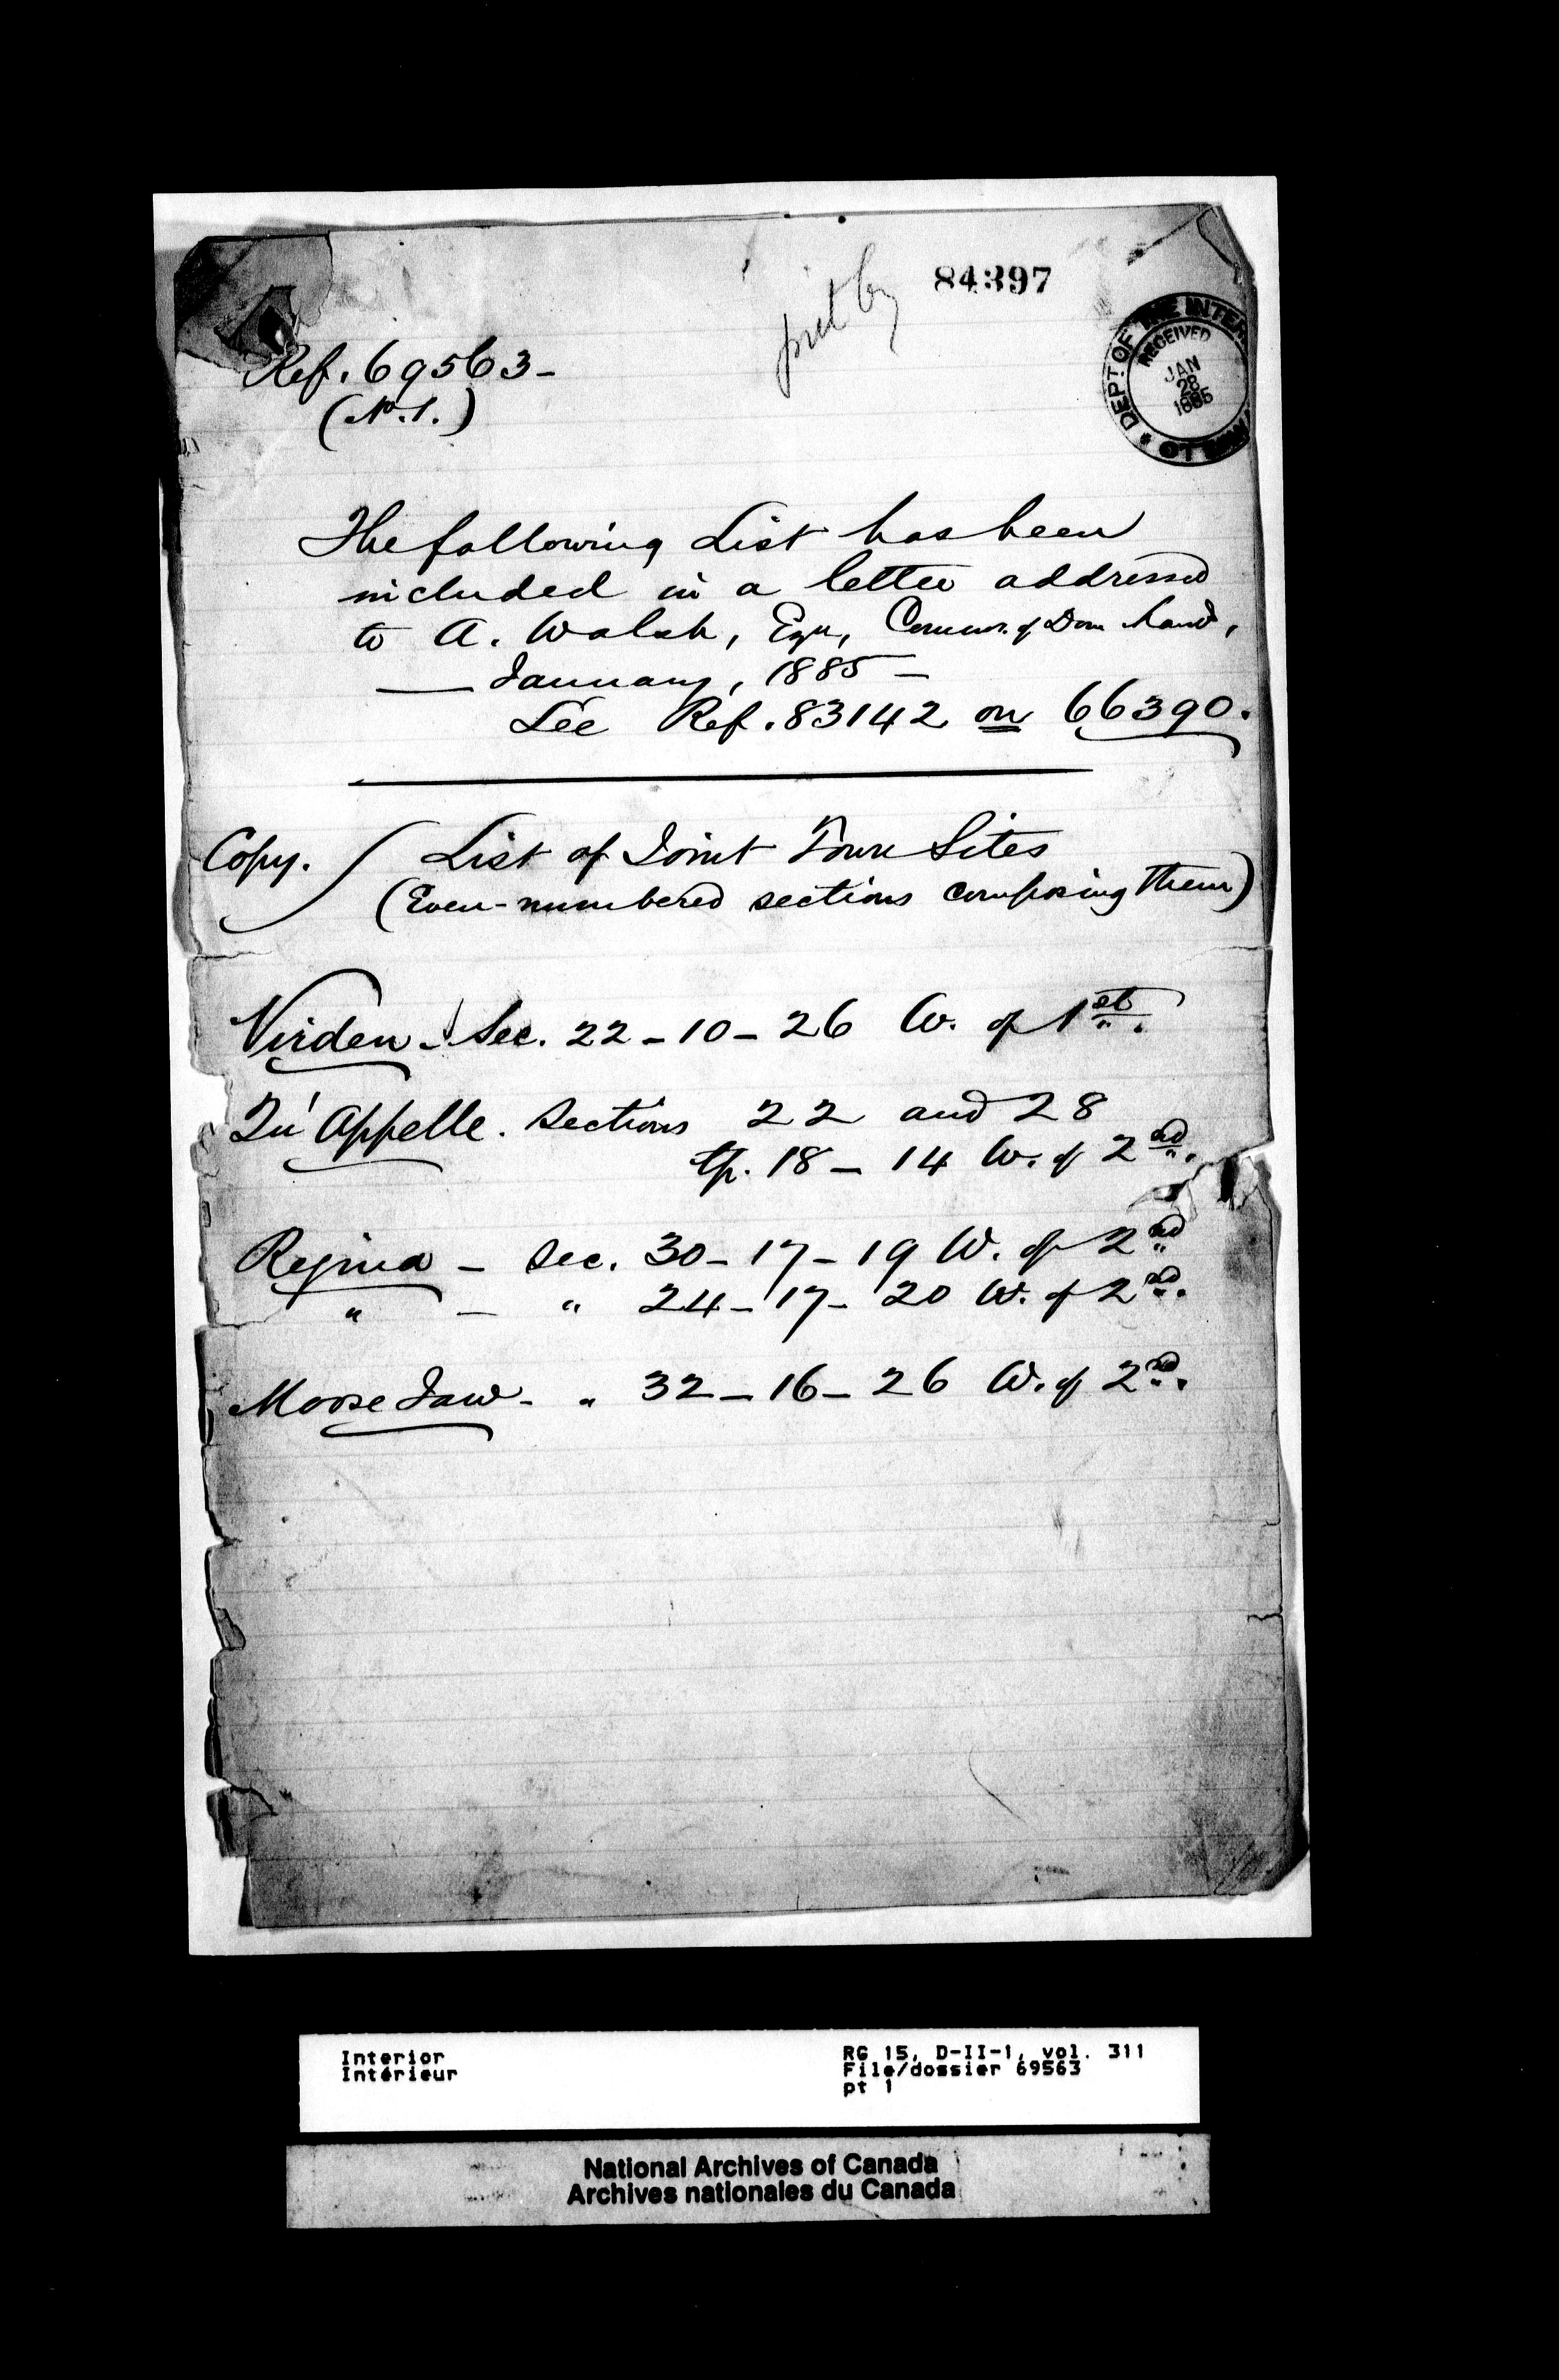 84397
put by
DEPT OF THE INTER
RECEIVED
JAN
28
1885
OTTAWA
Ref. 69563-
(No. 1.)
The following List has been
included in a letter addressed
to A. Walsh, Esqr, Commr. of Dom Land,
— January, 1885 —
See Ref. 83142 on 66390.
Copy. / List of Joint Town Sites
(Even-numbered sections composing them)
Virden - Sec. 22 - 10 - 26 W. of 1st.
Qu'Appelle. Sections 22 and 28
tp. 18 - 14 W. of 2nd.
Regina - Sec. 30 - 17 - 19 W. of 2nd
" - " 24 - 17 - 20 W. of 2nd.
Moose Jaw - " 32 - 16 - 26 W. of 2nd.
Interior
Intérieur
RG 15, D-II-1, vol. 311
File/dossier 69563
pt 1
National Archives of Canada
Archives nationales du Canada